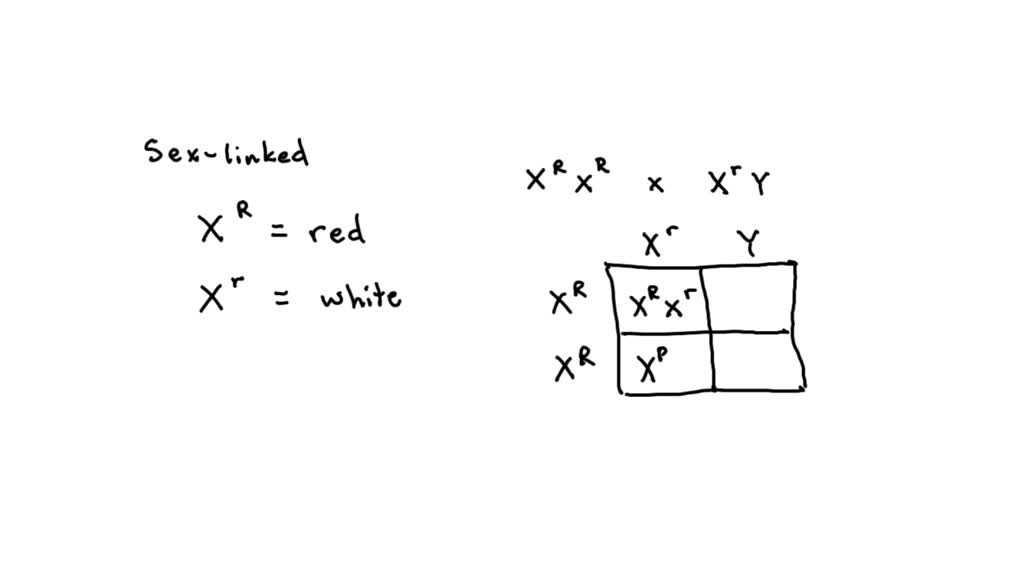 Sex-linked
X^R = red
X^r = white
X^R X^R x X^r Y
X^r Y
X^R X^R X^r
X^R X^P